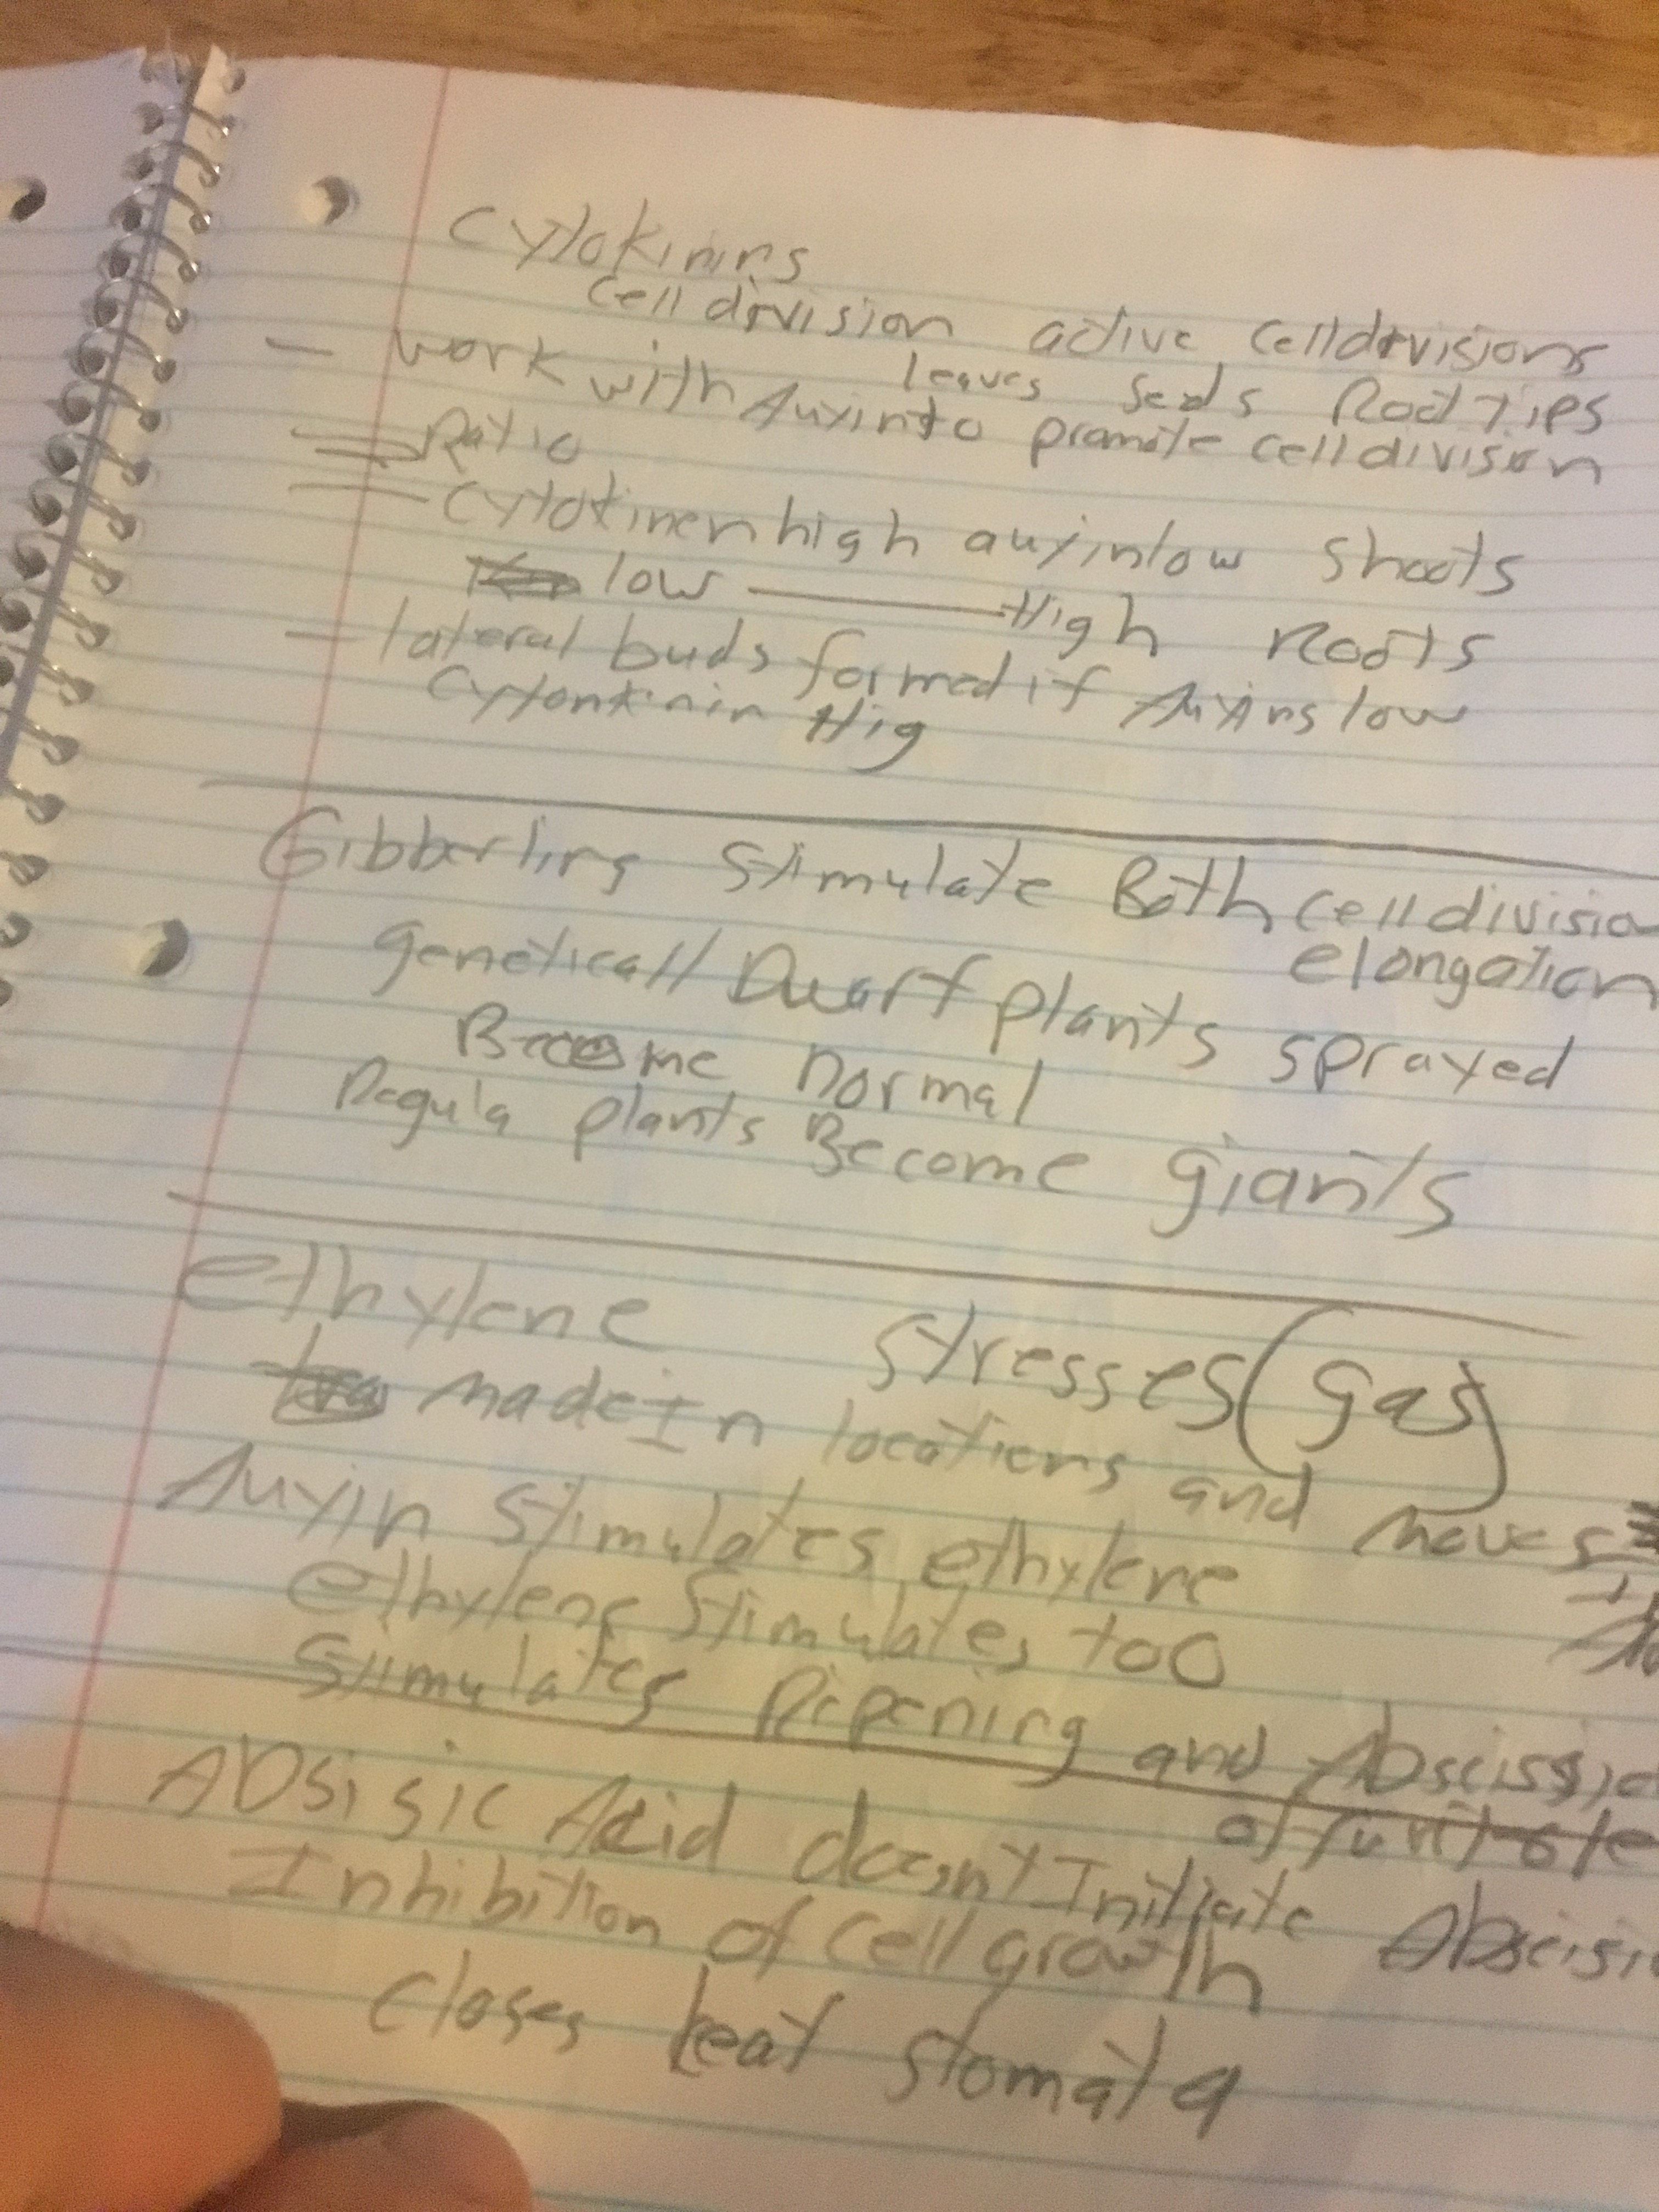 Cytokinins
Cell division active cell divisions
leaves seeds Root Tips
- work with Auxin to promote cell division
Ratio
Cytokinen high auxin low shoots
low — High Roots
- lateral buds formed if Auxins low
Cytonkinin Hig
Gibberlins stimulate Both cell division
elongation
genetically Dwarf plants sprayed
Become normal
Regula plants Become giants
Ethylene stresses (gas)
made In locations and moves
Auxin stimulates ethylene
ethylene stimulates too
Stimulates Ripening and Abscissio
of
Absisic Acid doesnt Initiate Abscisi
Inhibition of cell growth
closes leaf stomata